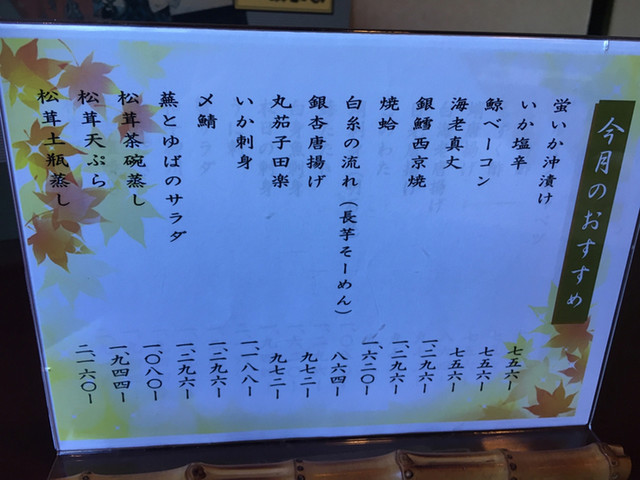 今月のおすすめ
蛍いか沖漬け 七五六ー
いか塩辛 七五六ー
鯨ベーコン 七五六ー
海老真丈 一、二九六ー
銀鱈西京焼 一、二九六ー
焼蛤 一、六二〇ー
白糸の流れ（長芋そーめん） 八六四ー
銀杏唐揚げ 九七二ー
丸茄子田楽 九七二ー
いか刺身 一、一八八ー
〆鯖 一、二九六ー
蕪とゆばのサラダ 一、二九六ー
松茸茶碗蒸し 一、〇八〇ー
松茸天ぷら 一、九四四ー
松茸土瓶蒸し 二、一六〇ー